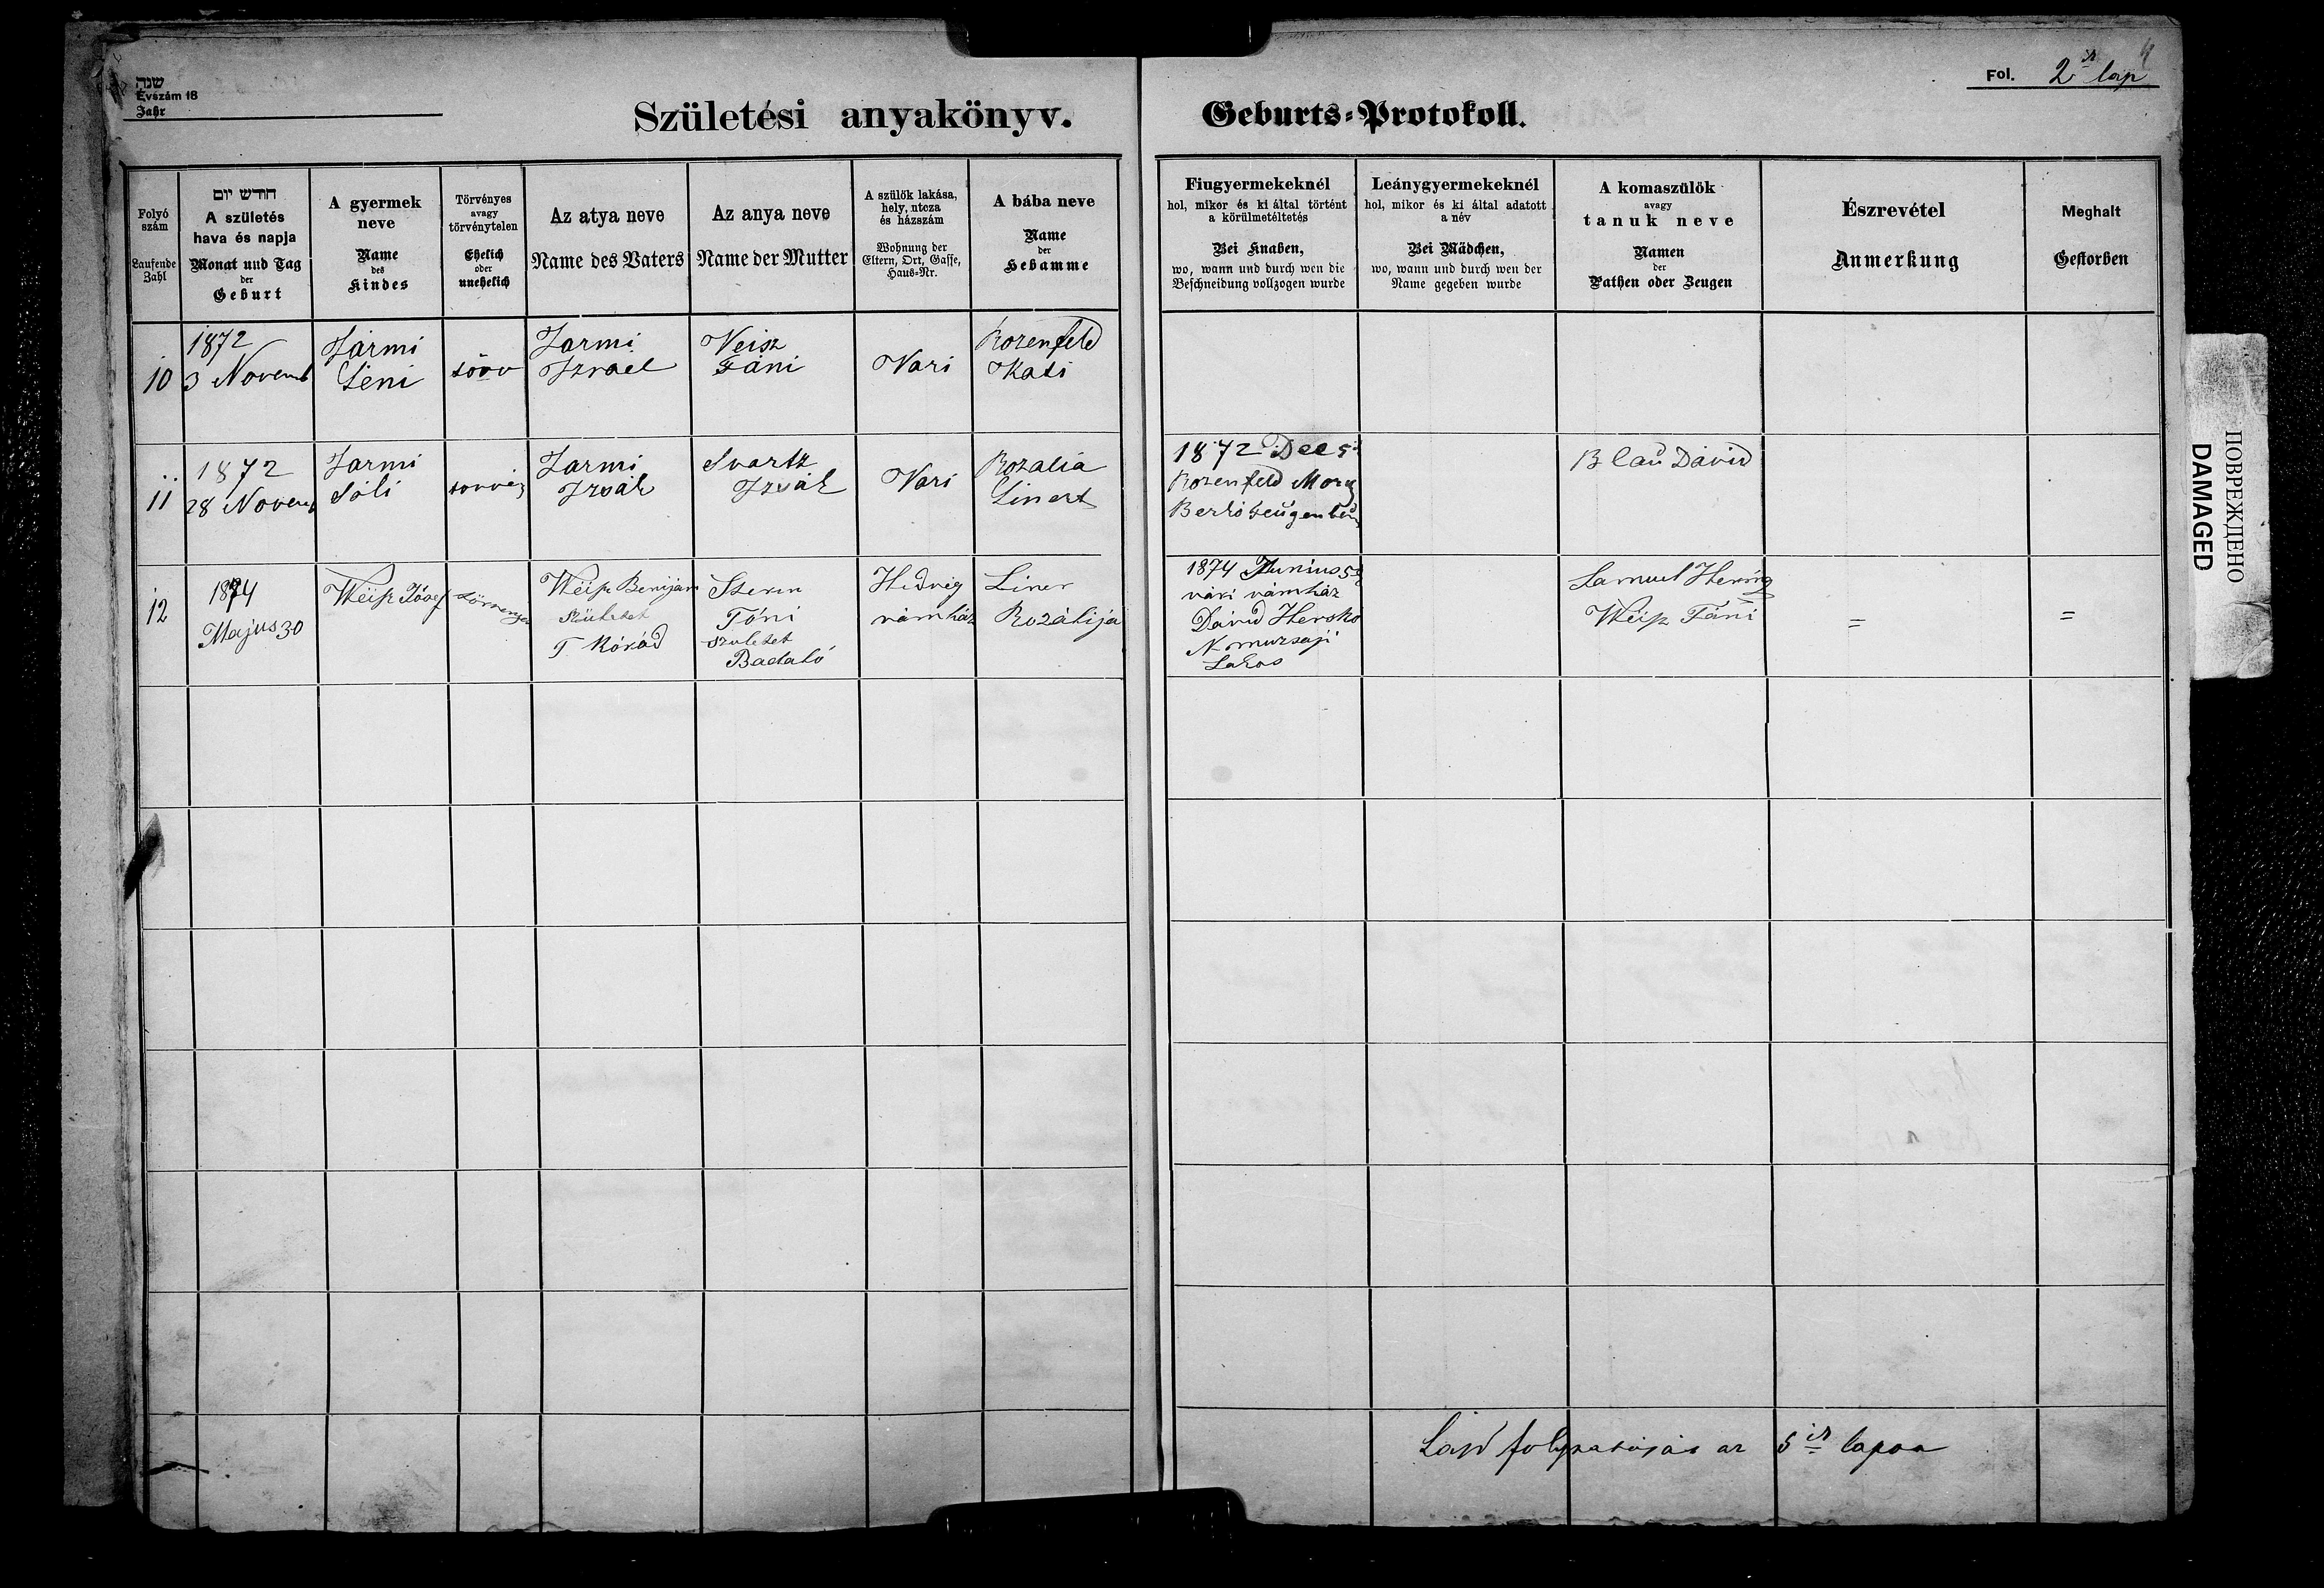 שנה
Évszám 18
Jahr
Születési anyakönyv.
Geburts-Protokoll.
Fol. 2ik lap
4
Folyó
szám
Laufende
Zahl
חודש יום
A születés
hava és napja
Monat und Tag
der
Geburt
A gyermek
neve
Name
des
Kindes
Törvényes
avagy
törvénytelen
Ehelich
oder
unehelich
Az atya neve
Name des Vaters
Az anya neve
Name der Mutter
A szülők lakása,
hely, utcza
és házszám
Wohnung der
Eltern, Ort, Gasse,
Haus-Nr.
A bába neve
Name
der
Hebamme
Fiugyermekeknél
hol, mikor és ki által történt
a körülmetéltetés
Bei Knaben,
wo, wann und durch wen die
Beschneidung vollzogen wurde
Leánygyermekeknél
hol, mikor és ki által adatott
a név
Bei Mädchen,
wo, wann und durch wen der
Name gegeben wurde
A komaszülők
avagy
tanuk neve
Namen
der
Pathen oder Zeugen
Észrevétel
Anmerkung
Meghalt
Gestorben
10
1872
3 Novemb
Jármi
Leni
törv
Jarmi
Izrael
Veisz
Fáni
Vari
Rozenfeld
Kati
11
1872
28 Novem
Jarmi
Sáli
törvéy
Jarmi
Izsák
Svartz
Izsák
Vari
Rozalia
Linert
1872 Dec 5
Rozenfeld Mory
Berko
Blau Dávid
12
1874
Majus 30
Weisz Józef
törvenyes
Weisz Benijam
Születet
T Kórád
Stern
Fáni
szuletet
Badaló
Hidvég
vámház
Liner
Rozálija
1874 Junius 5
vári vámház
Dávid Hersko
N muzsaji
Lakos
Samuel Hering
Weisz Fáni
=
=
Lásd folytatását az 5ik lapon
ПОВРЕЖДЕНО
DAMAGED